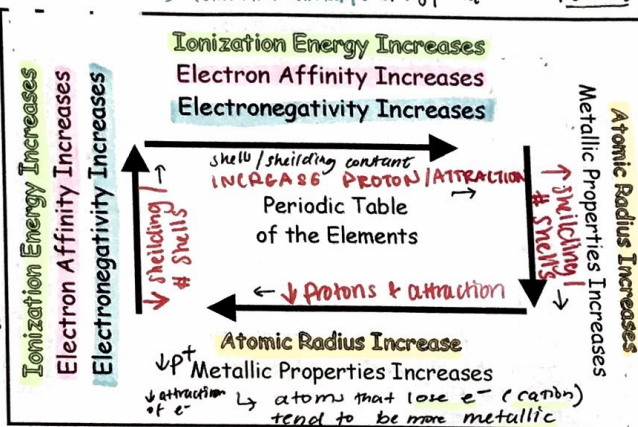 Ionization Energy Increases
Electron Affinity Increases
Electronegativity Increases
Ionization Energy Increases
Electron Affinity Increases
Electronegativity Increases
↓ sheilding /
# shells
shell/sheilding constant
INCREASE PROTON/ATTRACTION
→
Periodic Table
of the Elements
↑ sheilding /
# shells
Metallic Properties Increases
Atomic Radius Increases
← ↓ protons & attraction
Atomic Radius Increase
↓p+ Metallic Properties Increases
↓ attraction
of e-
↳ atoms that lose e- (cation)
tend to be more metallic